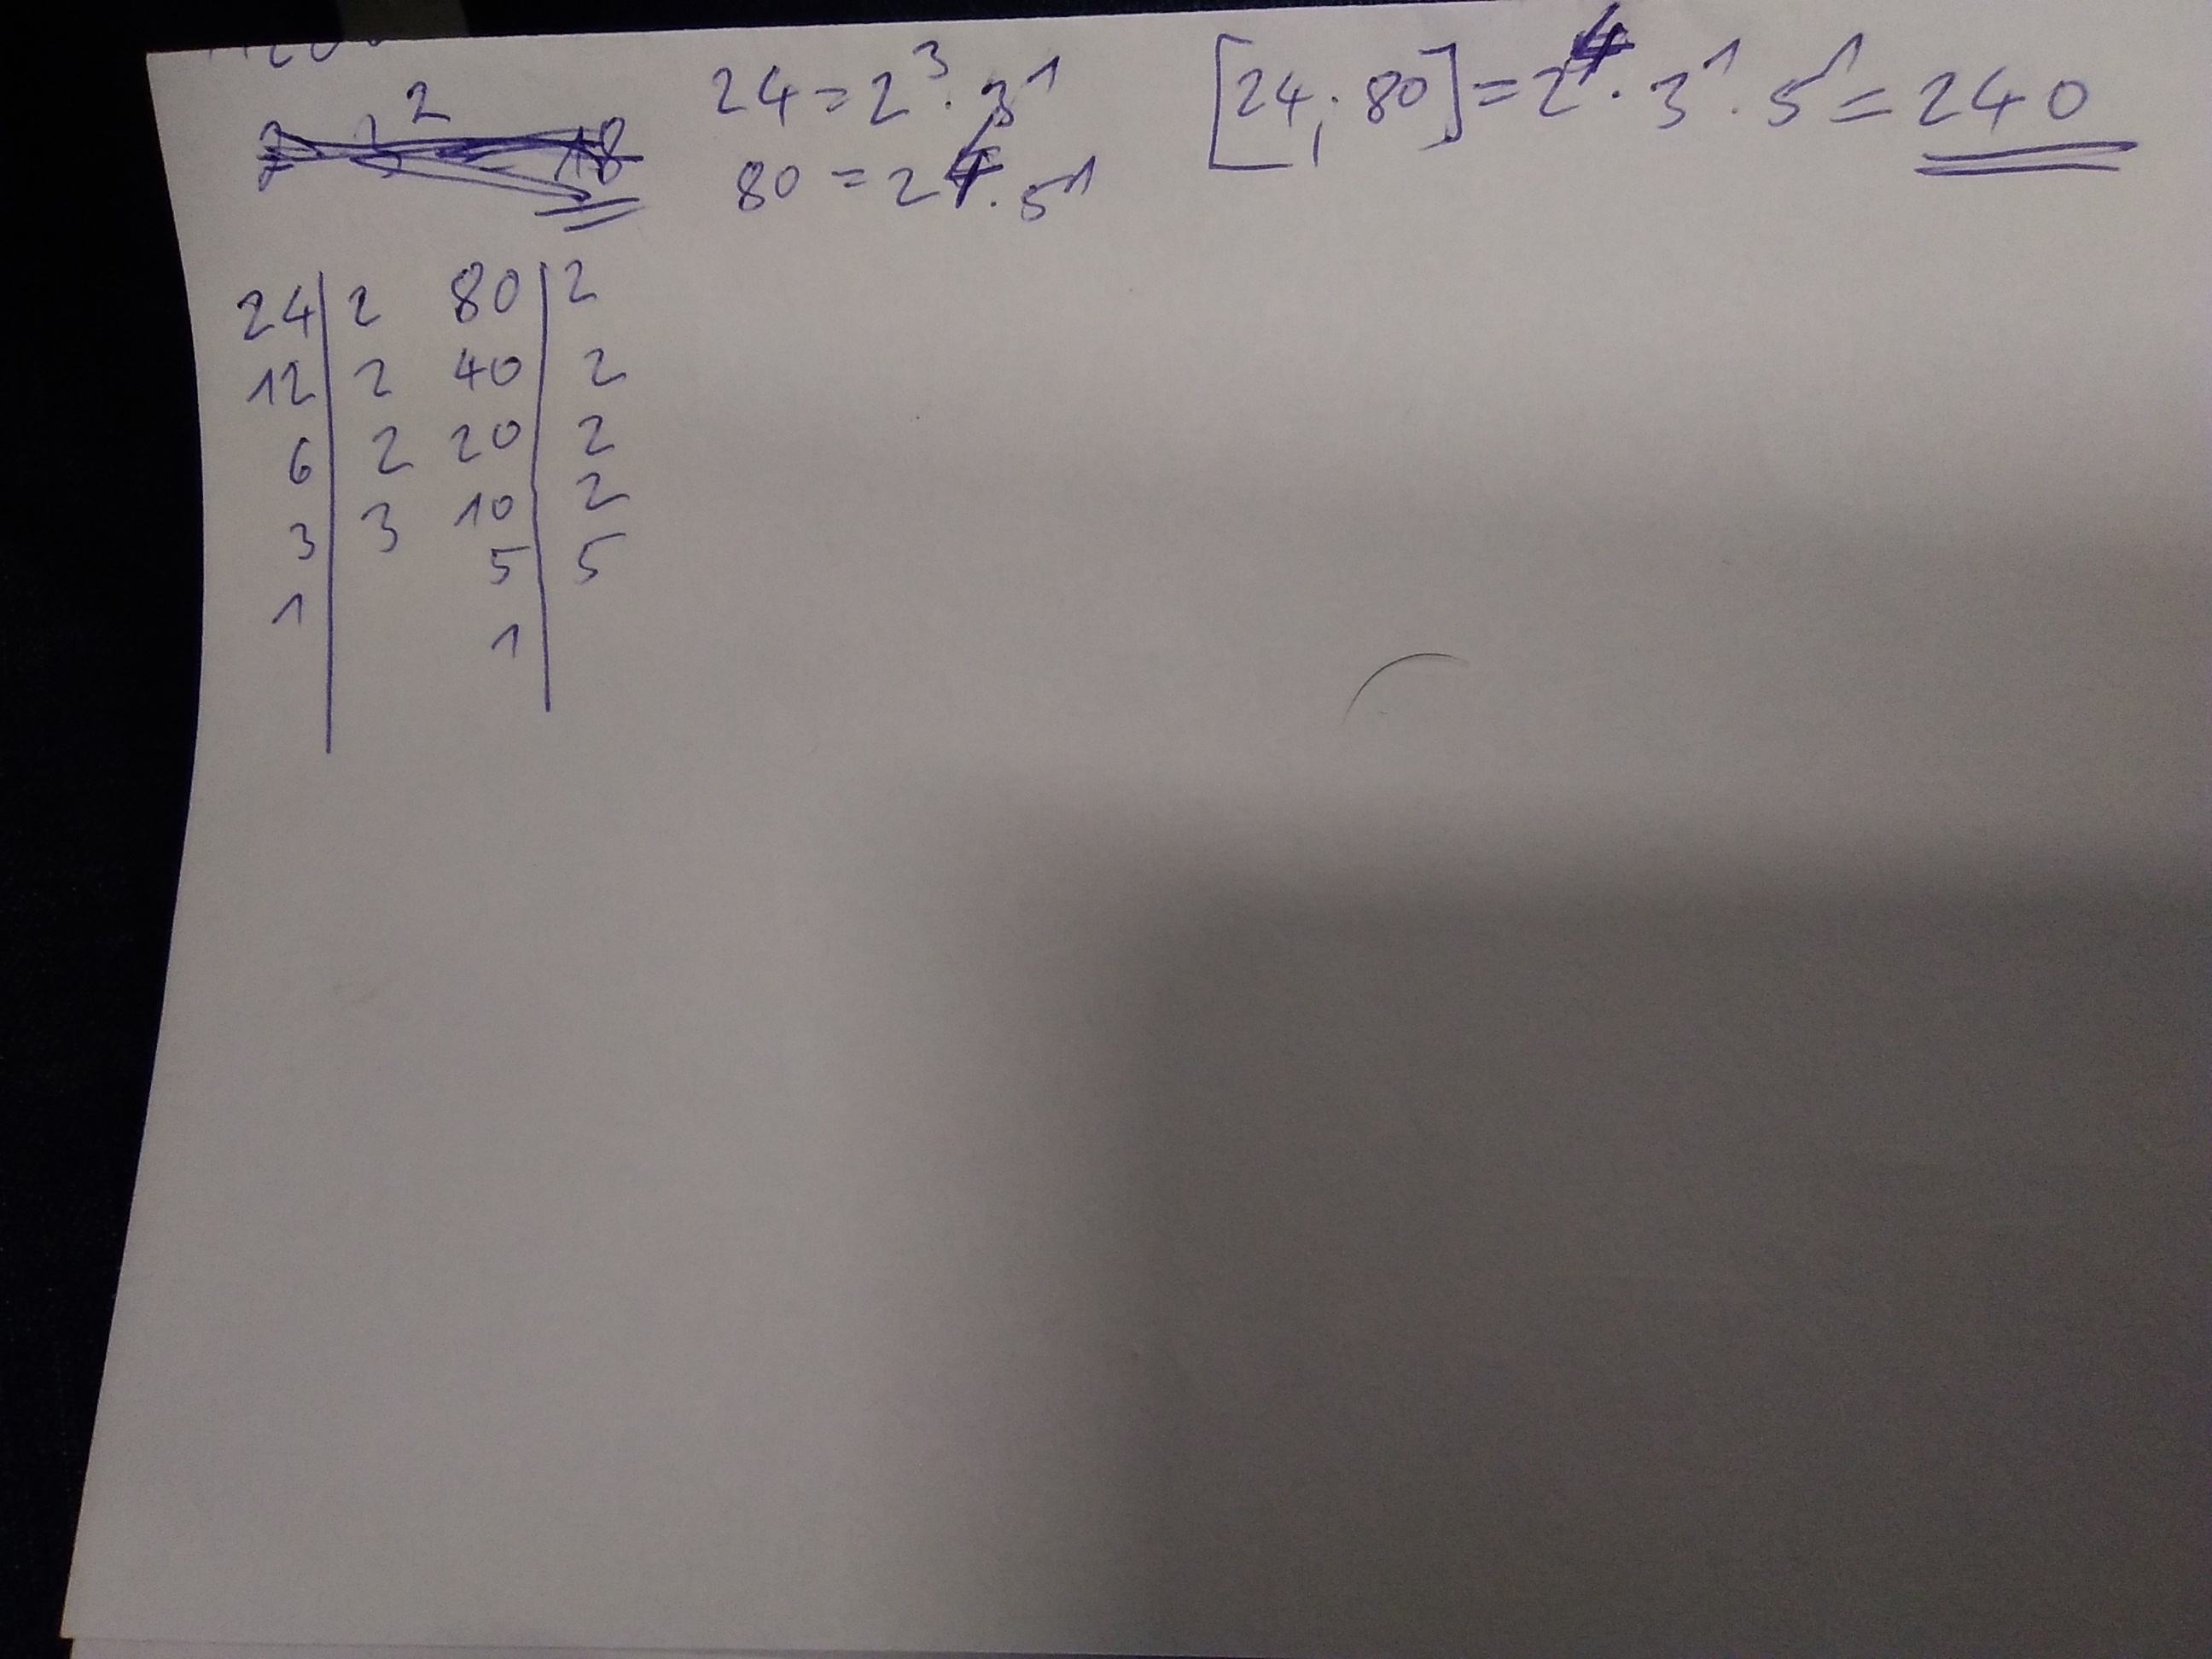 2
24 = 2³ · 3¹
80 = 2⁴ · 5¹
[24; 80] = 2⁴ · 3¹ · 5¹ = 240
24 | 2 80 | 2
12 | 2 40 | 2
6 | 2 20 | 2
3 | 3 10 | 2
1 | 5 | 5
1 |